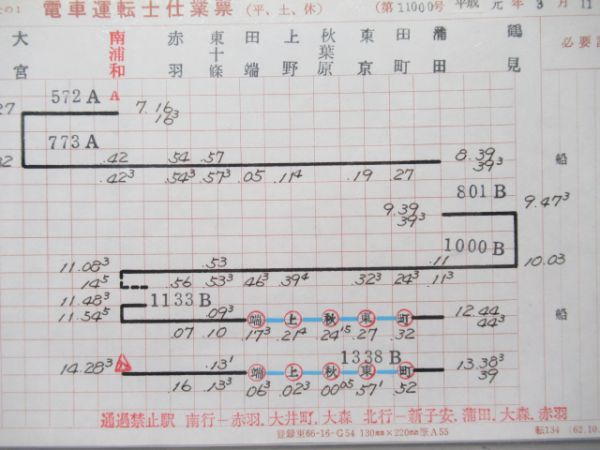 その1 電車運転士仕業票 (平、土、休) (第11000号 平成 元年 3月 11
大宮 南浦和 赤羽 東十條 田端 上野 秋葉原 東京 田町 蒲田 鶴見 必要
A
27 572A 7.16 16³
773A
32 .42 .54 .57 8.39 船
.42³ .54³ .57³ .05 .11⁴ .19 .27 39³
801B
9.39 39³ 9.47³
1000B
11.08³ .53 .11 10.03
14⁵ .56 .53³ 46³ .39⁴ .32³ 24³ .11³
11.48³ 1133B
11.54⁵ .09³ 端 上 秋 東 町 12.44 船
.07 .10 17³ .21⁴ 24¹⁵ .27 .32 44³
14.28³ .13¹ 端 上 秋 東 町 1338B 13.38³
16 .13³ 06³ .02³ 00⁰⁵ 57¹ .52 39
通過禁止駅 南行-赤羽.大井町.大森 北行-新子安.蒲田.大森.赤羽
登録東66-16-G54 130mm×220mm厚A55 転134 (62.10.